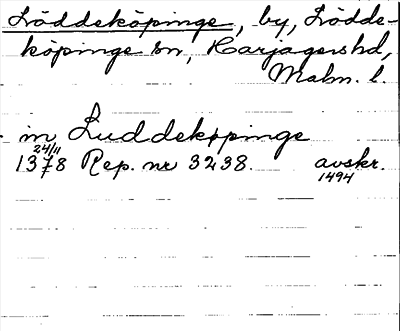 Löddeköpinge, by, Lödde-
köpinge sn, Harjagers hd,
Malm. l.
in Luddekøpinge
1378 24/11 Rep. nr 3238. avskr.
1494